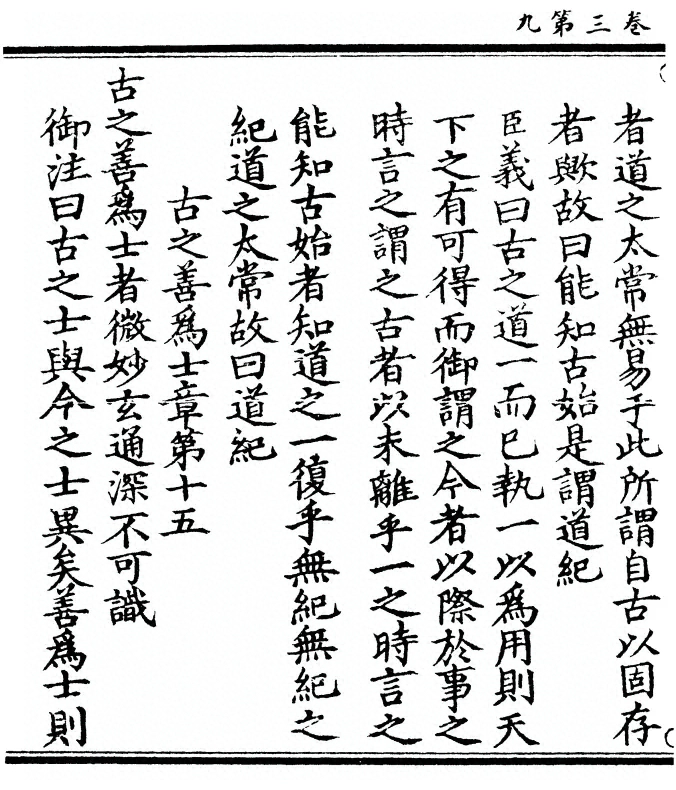 卷三第九
者道之太常無易乎此所謂自古以固存
者歟故曰能知古始是謂道紀
臣義曰古之道一而已執一以爲用則天
下之有可得而御謂之今者以際於事之
時言之謂之古者以未離乎一之時言之
能知古始者知道之一復乎無紀無紀之
紀道之太常故曰道紀
古之善爲士章第十五
古之善爲士者微妙玄通深不可識
御注曰古之士與今之士異矣善爲士則